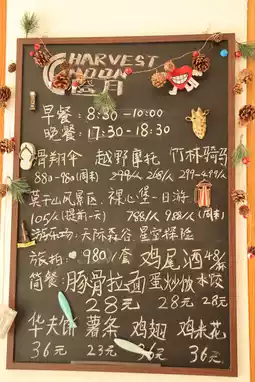 HARVEST
MOON
早餐: 8:30-10:00
晚餐: 17:30-18:30
滑翔伞 越野摩托 竹林骑马
880-980(周末) 299/人 268/人 299-499/人
莫干山风景区 裸心堡一日游
105/人(提前一天) 788/人 988/人(周末)
游乐场: 天际森谷. 星空探险
旅拍: 980/套 鸡尾酒48/杯
简餐: 豚骨拉面 蛋炒饭 水饺
28元 28元 28元
华夫饼 薯条 鸡翅 鸡米花
36元 23元 36元 36元